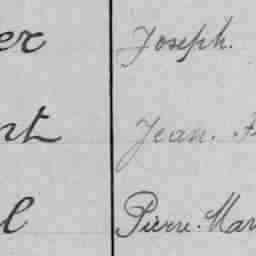 er Joseph.
nt Jean.
l Pierre. Mar